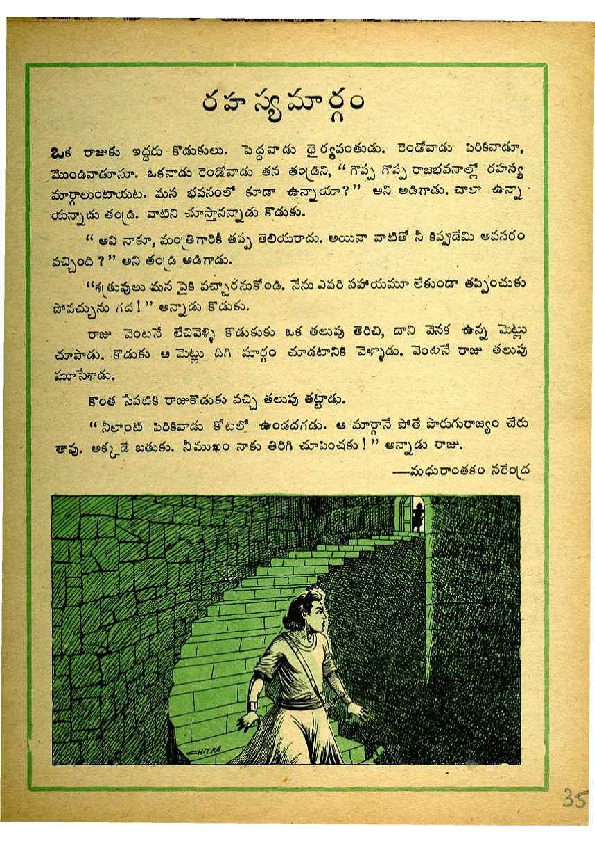 రహస్యమార్గం
ఒక రాజుకు ఇద్దరు కొడుకులు. పెద్దవాడు ధైర్యవంతుడు. రెండోవాడు పిరికివాడూ,
మొండివాడూనూ. ఒకనాడు రెండోవాడు తన తండ్రిని, “గొప్ప గొప్ప రాజభవనాల్లో రహస్య
మార్గాలుంటాయట. మన భవనంలో కూడా ఉన్నాయా?” అని అడిగాడు. చాలా ఉన్నా
యన్నాడు తండ్రి. వాటిని చూస్తానన్నాడు కొడుకు.
“అవి నాకూ, మంత్రిగారికీ తప్ప తెలియరాదు. అయినా వాటితో నీ కిప్పుడేమి అవసరం
వచ్చింది?” అని తండ్రి అడిగాడు.
“శత్రువులు మన పైకి వచ్చారనుకోండి. నేను ఎవరి సహాయమూ లేకుండా తప్పించుకు
పోవచ్చును గద!” అన్నాడు కొడుకు.
రాజు వెంటనే లేచివెళ్ళి కొడుకుకు ఒక తలుపు తెరిచి, దాని వెనక ఉన్న మెట్లు
చూపాడు. కొడుకు ఆ మెట్లు దిగి మార్గం చూడటానికి వెళ్ళాడు. వెంటనే రాజు తలుపు
మూసేశాడు.
కొంత సేపటికి రాజుకొడుకు వచ్చి తలుపు తట్టాడు.
“నీలాంటి పిరికివాడు కోటలో ఉండదగడు. ఆ మార్గానే పోతే పొరుగురాజ్యం చేరు
తావు. అక్కడే బతుకు. నీముఖం నాకు తిరిగి చూపించకు!” అన్నాడు రాజు.
—మధురాంతకం నరేంద్ర
CHITRA
35